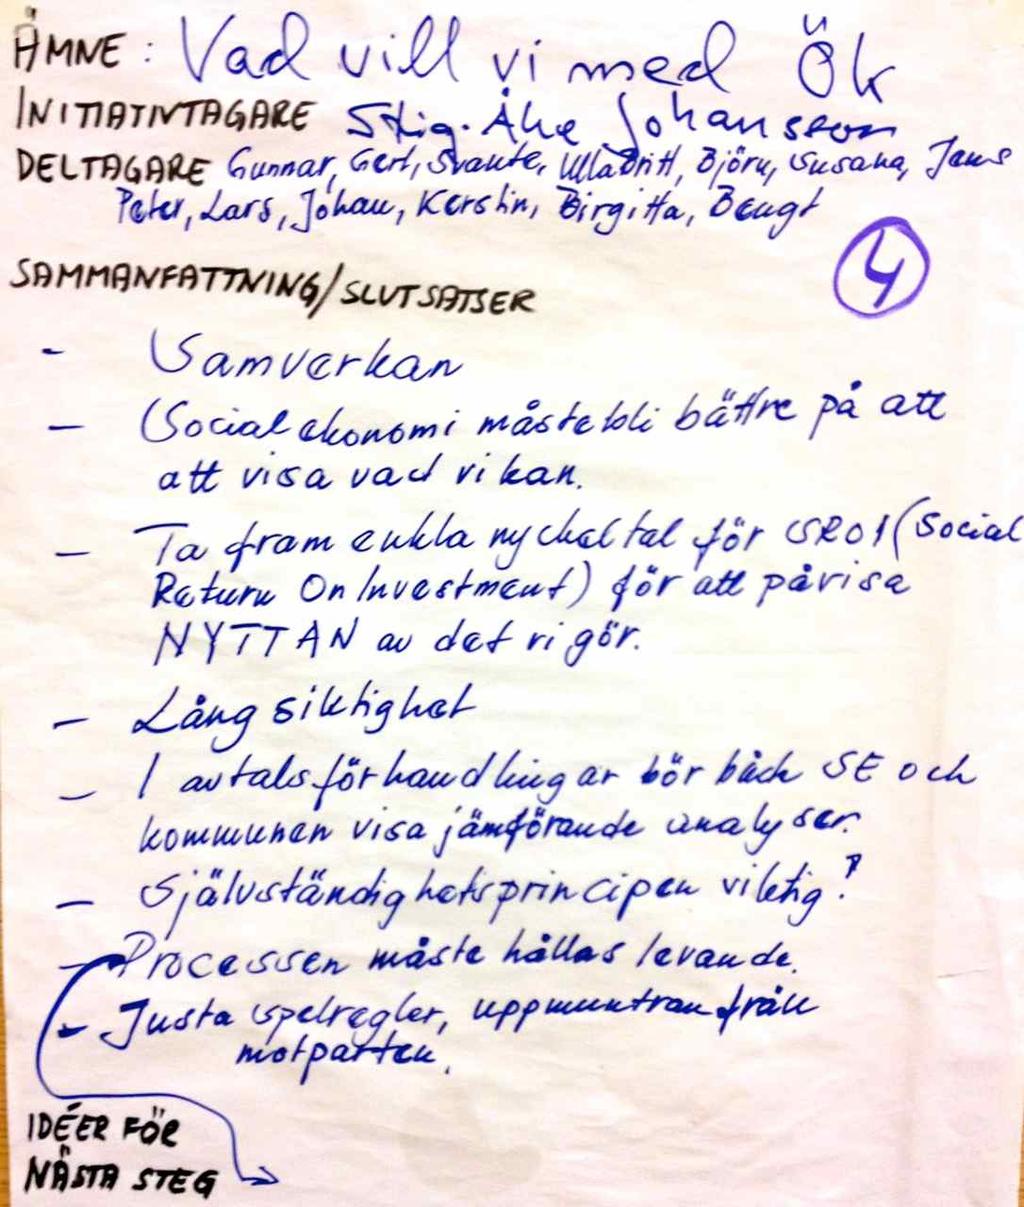 ÄMNE : Vad vill vi med Ök
INITIATIVTAGARE Stig-Åke Johansson
DELTAGARE Gunnar, Gert, Svante, Ulla Britt, Björn, Susana, Jens
Peter, Lars, Johan, Kerstin, Birgitta, Bengt
4
SAMMANFATTNING/SLUTSATSER
- Samverkan
- Social ekonomi måste bli bättre på att
att visa vad vi kan.
- Ta fram enkla nyckeltal för SROI (Social
Return On Investment) för att påvisa
NYTTAN av det vi gör.
- Långsiktighet
- I avtalsförhandlingar bör både SE och
kommunen visa jämförande analyser.
- Självständighetsprincipen viktig!
- Processen måste hållas levande.
- Justa spelregler, uppmuntran från
motparten.
IDÉER FÖR
NÄSTA STEG